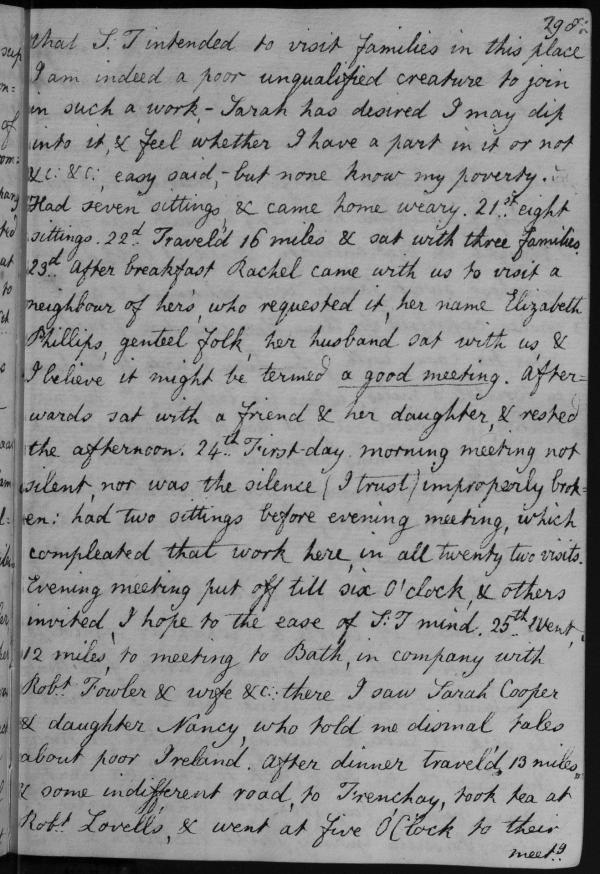 298
that S. T intended to visit families in this place
I am indeed a poor unqualified creature to join
in such a work, - Sarah has desired I may dip
into it, & feel whether I have a part in it or not
&c: &c:, easy said, - but none know my poverty.
Had seven sittings, & came home weary. 21.st eight
sittings. 22.d Travel'd 16 miles & sat with three families.
23.d After breakfast Rachel came with us to visit a
neighbour of her's, who requested it, her name Elizabeth
Phillips, genteel folk, her husband sat with us, &
I believe it might be termed a good meeting. After=
wards sat with a friend & her daughter, & rested
the afternoon. 24.th First-day morning meeting not
silent, nor was the silence (I trust) improperly brok=
en: had two sittings before evening meeting, which
compleated that work here, in all twenty two visits.
Evening meeting put off till six O'clock, & others
invited, I hope to the ease of S: T mind. 25.th Went,
12 miles, to meeting to Bath, in company with
Rob.t Fowler & wife &c: there I saw Sarah Cooper
& daughter Nancy, who told me dismal tales
about poor Ireland. After dinner travel'd, 13 miles,
& some indifferent road, to Frenchay, took tea at
Rob.t Lovell's, & went at five O'Clock to their
meet.g